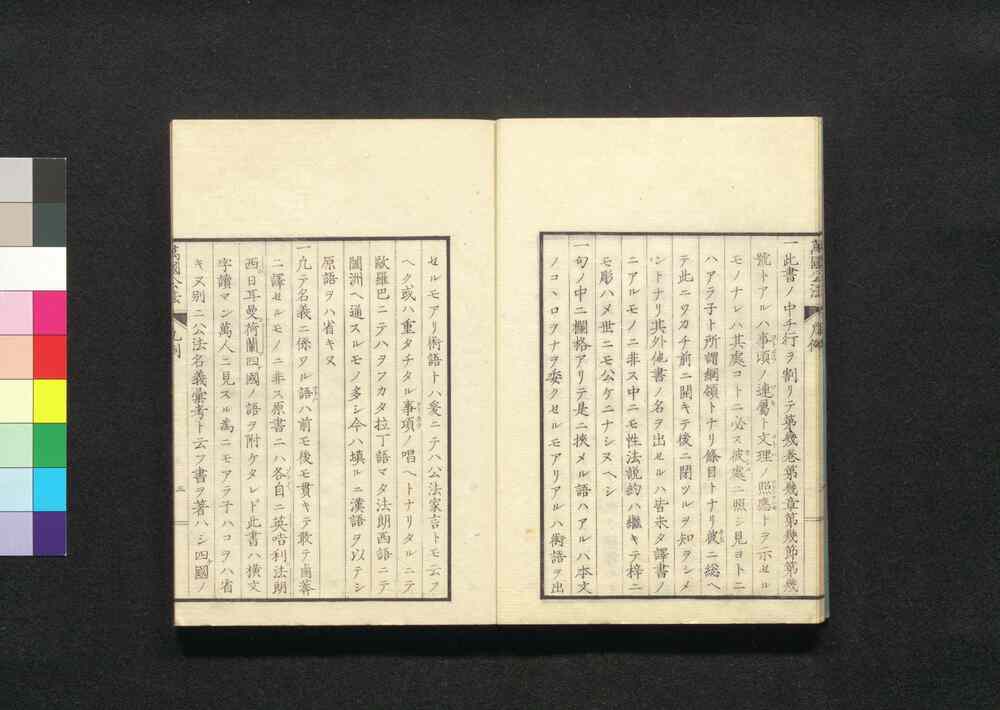 一此書ノ中チ行ヲ割リテ第幾卷第幾章第幾節第幾
號トアルハ事項ノ連屬ト文理ノ照應トヲ示セル
モノナレハ其處コトニ必ス彼處ニ照シ見ヨトニ
ハアラ子ト所謂綱領トナリ條目トナリ彼ニ総ヘ
テ此ニワカチ前ニ開キテ後ニ閉ツルヲ知ラシメ
ントナリ其外他書ノ名ヲ出セルハ皆未タ譯書ノ
ニアルモノニ非ス中ニモ性法説約ハ繼キテ梓ニ
モ彫ハメ世ニモ公ケニナシヌヘシ
一句ノ中ニ欄格アリテ是ニ挾メル語ハアルハ本文
ノコヽロヲナヲ委クセルモアリアルハ術語ヲ出
萬國公法
セルモアリ術語トハ爰ニテハ公法家言トモ云フ
ヘク或ハ重タチタル事項ノ唱ヘトナリタルニテ
歐羅巴ニテハヲフカタ拉丁語マタ法朗西語ニテ
闔洲ヘ通スルモノ多シ今ハ填ルニ漢語ヲ以テシ
原語ヲハ省キヌ
一凡テ名義ニ係ワル語ハ前モ後モ貫キテ敢テ鹵莾
ニ譯セルモノニ非ス原書ニハ各自ニ英吉利法朗
西日耳曼荷蘭四國ノ語ヲ附ケタレド此書ハ横文
字讀マン萬人ニ見スル為ニモアラ子ハコヲハ省
キヌ別ニ公法名義彙考ト云フ書ヲ著ハシ四國ノ
萬國公法 凡例
三